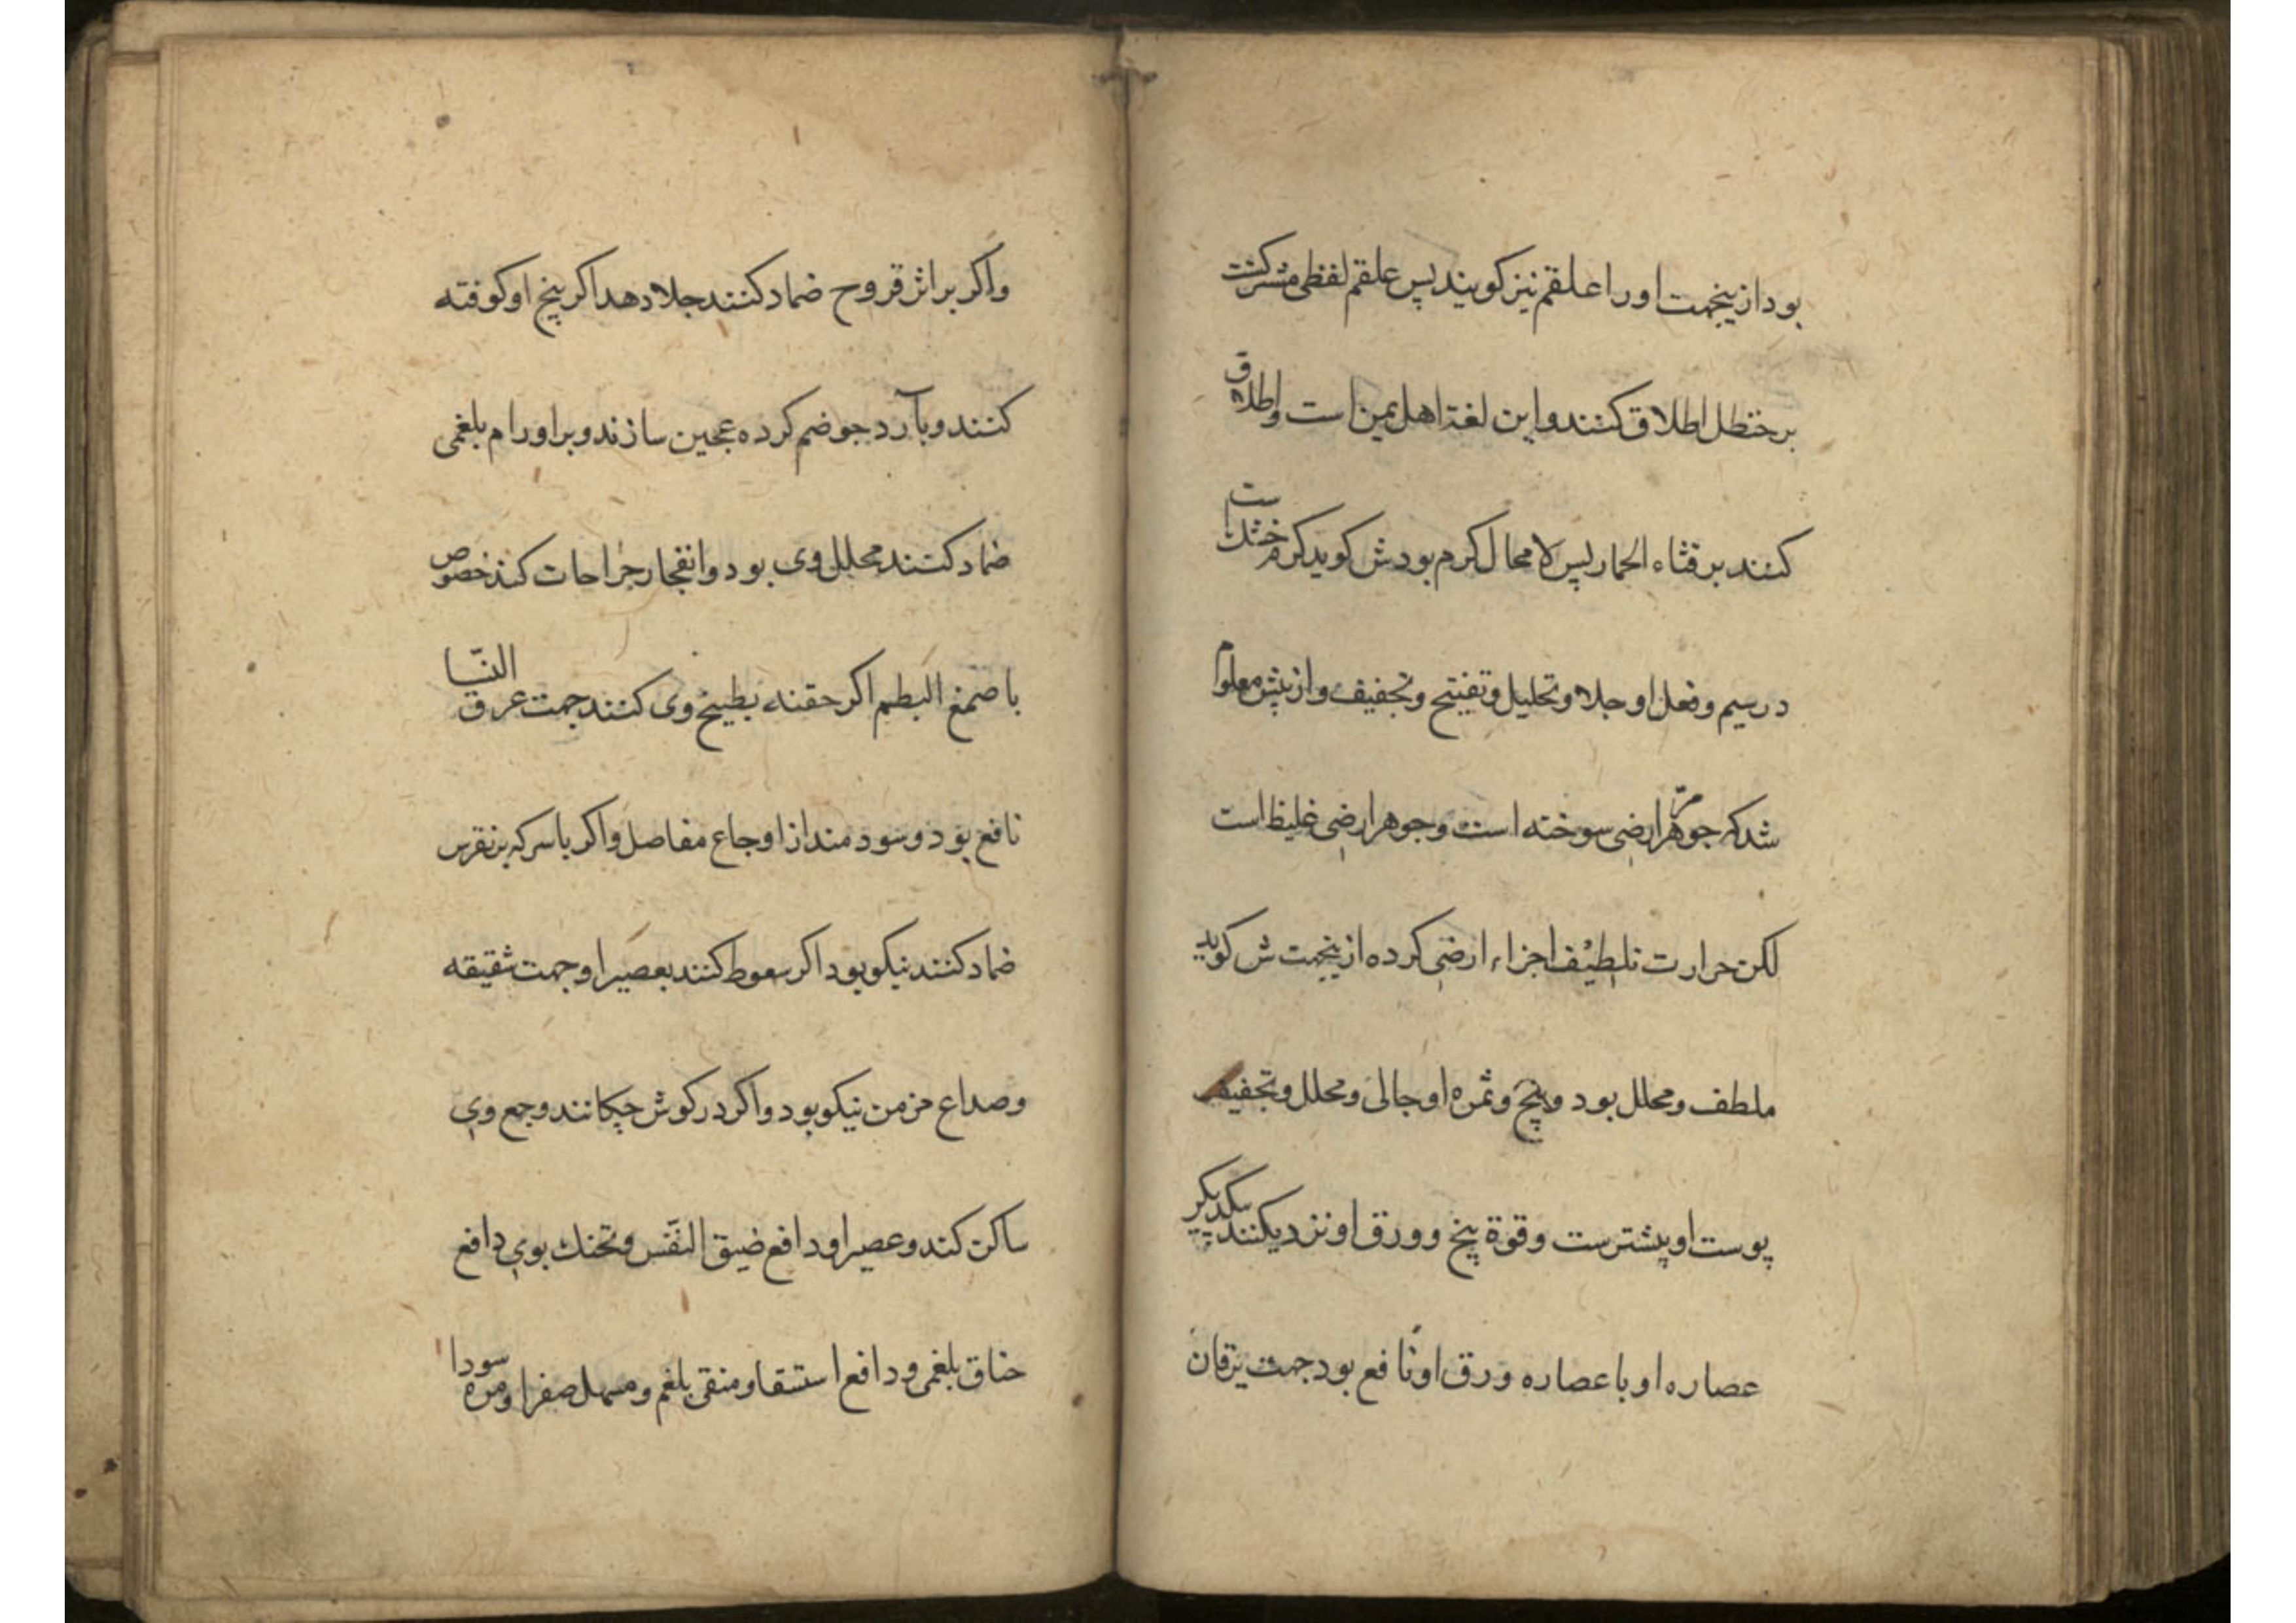 بود از ینجهت او را علقم نیز کویند پس علقم لفظی مشترکست
بر حنظل اطلاق کنند و این لغة اهل یمن است و اطلاق
کنند بر قثاء الحمار پس لا محال کرم بودش کوید کرم خشکست
در سیم و فعل او جلا و تحلیل و تفیتح و تجفیف و از پیش معلوم
شد که جوهر مرّ ارضی سوخته است و جوهر ارضی غلیظ است
لکن حرارت تلطیف اجزاء ارضی کرده از ینجهت ش کوید
ملطف و محلل بود و بیخ و ثمره او جالی و محلل و تجفیف
پوست او پیشترست و قوة بیخ و ورق او نزدیکند بیکدیکر
عصاره او با عصاره ورق او نافع بود جهت یرقان
و اکر بر اثر قروح ضماد کنند جلا دهد اکر بیخ او کوفته
کنند و با آرد جو ضم کرده عجین سازند و بر اورام بلغمی
ضماد کنند محلل وی بود و انفجار جراحات کند خصوص
با صمغ البطم اکر حقنه بطبیخ وی کنند جهت عرق النسا
نافع بود و سودمند از اوجاع مفاصل و اکر با سرکه بر نقرس
ضماد کنند نیکو بود اکر سعوط کنند بعصیر او جهت شقیقه
و صداع مزمن نیکو بود و اکر در کوش چکانند وجع وی
ساکن کند و عصیر او دافع ضیق النفس و تحنك بوی دافع
خناق بلغمی و دافع استسقا و منقی بلغم و مسهل صفرا و مره سودا